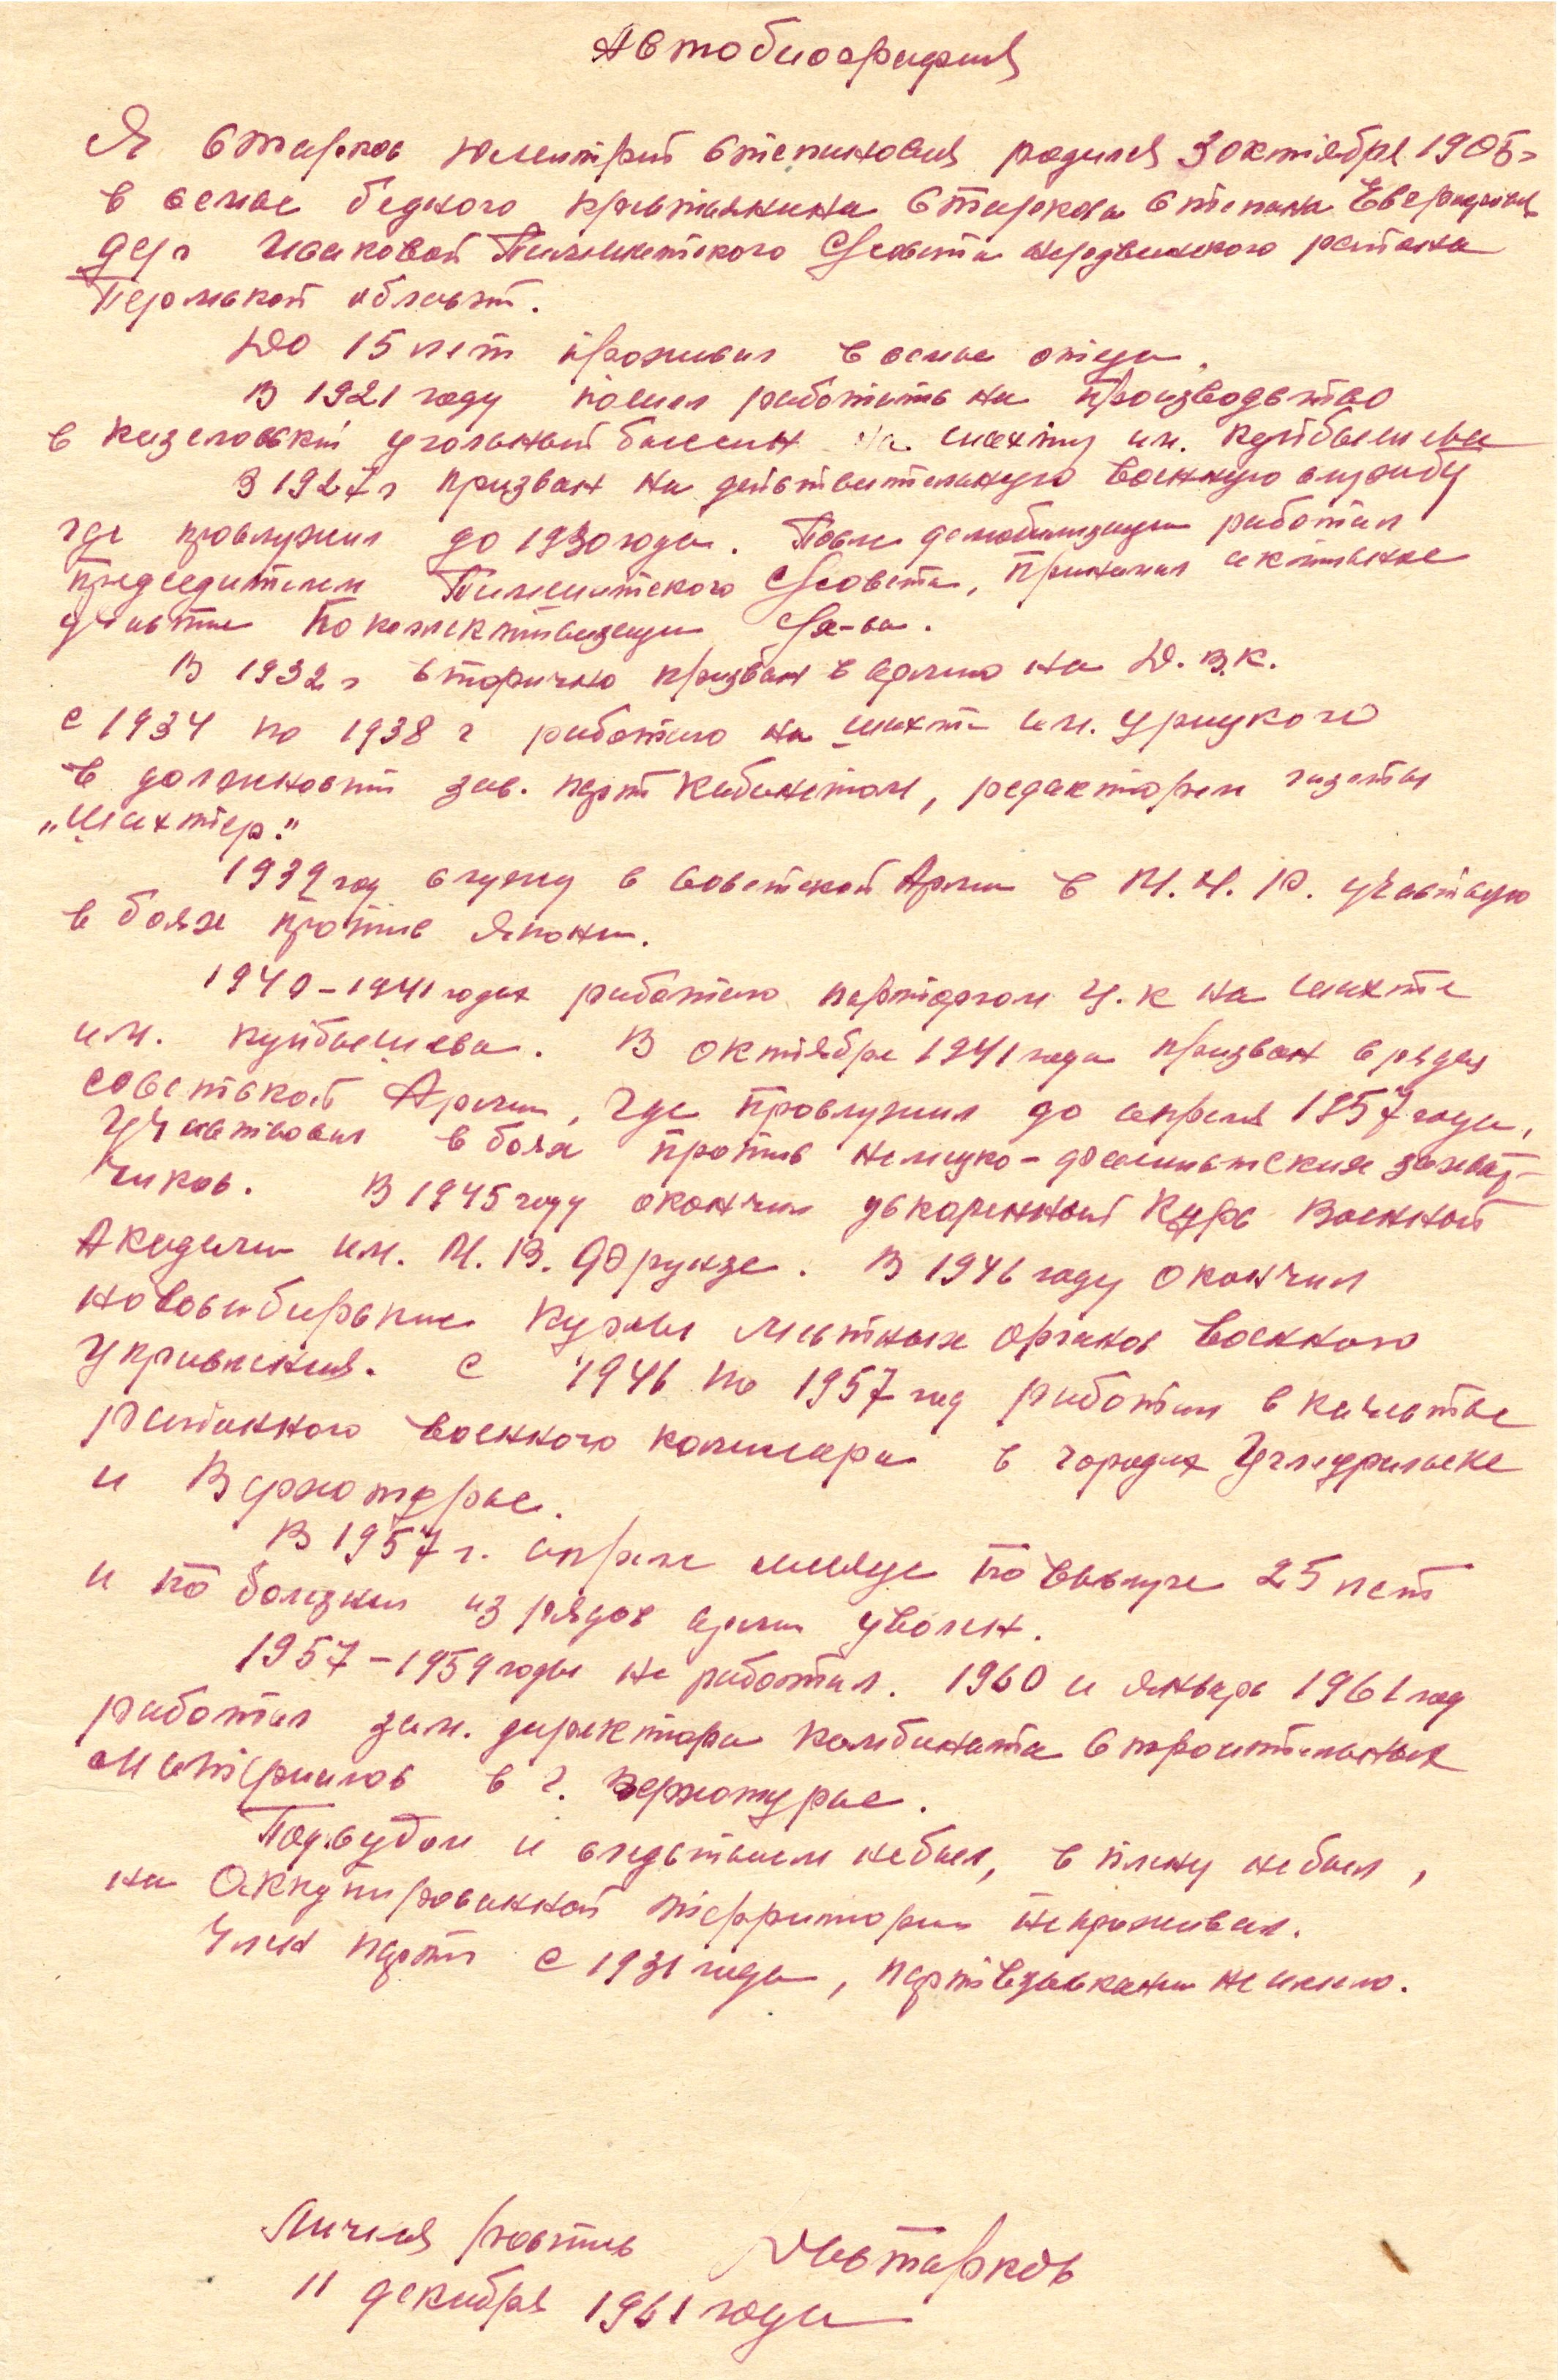 Автобиография
Я Старков Дмитрий Степанович родился 3 октября 1905 г
в семье бедного крестьянина Старкова Степана
дер. Исаковой С/совета района
Пермской област.
До 15 лет проживал в семье отца.
В 1921 году пошел работать на производство
в Кизеловский угольный бассейн на шахту им. Куйбышева
В 1927 г призван на действительную военную службу
где прослужил до 1930 года. После демобилизации работал
председателем С/совета, принимал активное
участие по коллективизации С/х-ва.
В 1932 г вторично призван в армию на Д.В.К.
с 1934 по 1938 г работаю на шахте им. Урицкого
в должности зав. парт кабинетом, редактором газеты
„Шахтер."
1939 год служу в Советской Армии в М.Н.Р. участвую
в боях против Японии.
1940-1941 годах работаю парторгом Ц.К на шахте
им. Куйбышева. В октябре 1941 года призван в ряды
Советской Армии, где прослужил до апреля 1957 года,
Участвовал в боях против немецко-фашистских захват-
чиков. В 1945 году окончил ускоренный Курс Военный
Академии им. М.В. Фрунзе. В 1946 году окончил
Новосибирские Курсы местных органов Военного
Управления. С 1946 по 1957 год работал в качестве
районного военного комиссара в городах Углеуральске
и Верхотурье.
В 1957 г. апреле месяце по выслуге 25 лет
и по болезни из рядов армии уволен.
1957-1959 годы не работал. 1960 и январь 1961 год
работал зам. директора Комбината Строительных
Материалов в г. Верхотурье.
Под судом и следствием не был, в плену не был,
на Оккупированной территории не проживал.
Член парти с 1931 года, партвзыскании не имею.
Личная роспись ДСтарков
11 декабря 1961 года